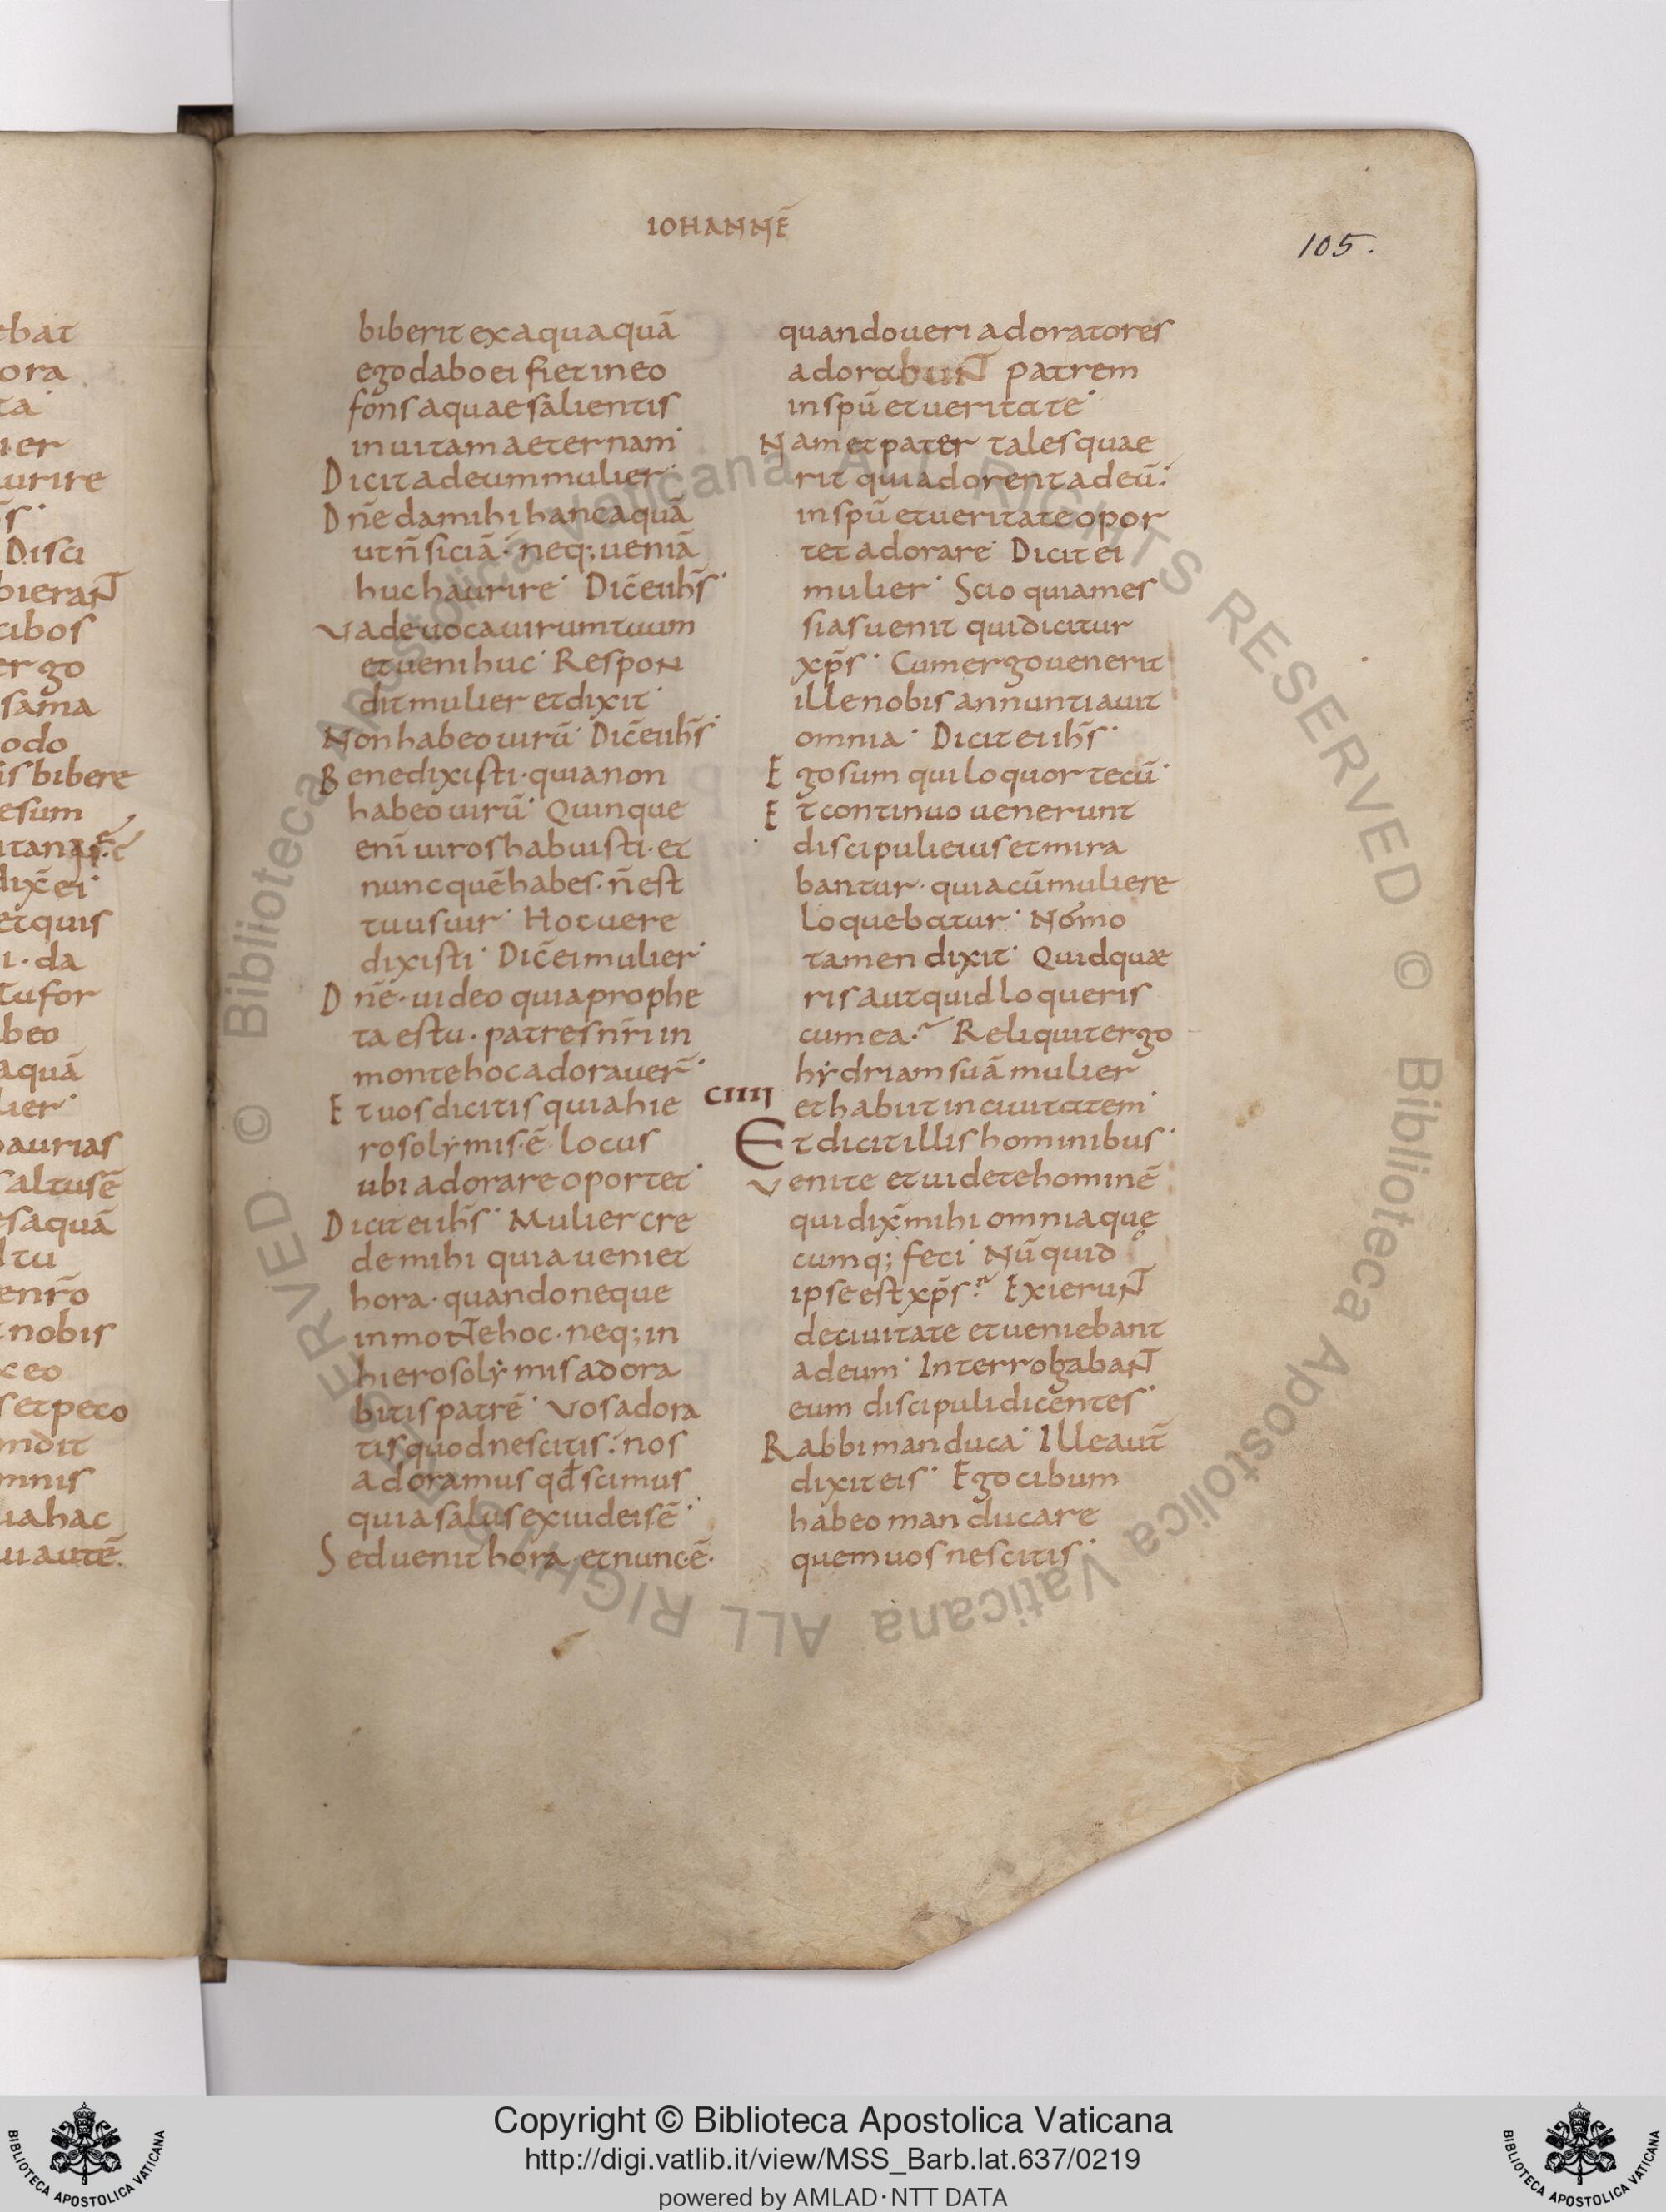 IOHANNĒ
105.
biberit ex aqua quā
ego dabo ei fiet in eo
fons aquae salientis
in uitam aeternam·
Dicit ad eum mulier·
Dn̄e da mihi hanc aquā
ut n̄ siciā· neq; ueniā
huc haurire· Dic̄ ei ih̄s·
Vade uoca uirum tuum
et ueni huc· Respon
dit mulier et dixit·
Non habeo uirū· Dic̄ ei ih̄s·
Bene dixisti· quia non
habeo uirū· Quinque
eni̅ uiros habuisti· et
nunc quē habes· n̄ est
tuus uir· Hoc uere
dixisti· Dic̄ ei mulier·
Dn̄e· uideo quia prophe
ta es tu· patres nr̄i in
monte hoc adorauer̄·
Et uos dicitis quia hie
rosolẏmis· ē locus
ubi adorare oportet·
Dicit ei ih̄s· Mulier cre
de mihi quia ueniet
hora· quando neque
in monte hoc· neq; in
hierosolẏmis adora
bitis patrē· Vos adora
tis quod nescitis: nos
adoramus qđ scimus
quia salus ex iudeis ē·
Sed uenit hora· et nunc· ē·
quando ueri adoratores
adorabunt patrem
in sp̄u et ueritate·
Nam et pater tales quae
rit qui adorent adeū:
in sp̄u et ueritate opor
tet adorare· Dicit ei
mulier· Scio quia mes
sias uenit qui dicitur
xp̄s· Cum ergo uenerit
ille nobis annuntiauit
omnia· Dicit ei ih̄s·
Ego sum qui loquor tecū·
Et continuo uenerunt
discipuli eius et mira
bantur· quia cū muliere
loquebatur· Nemo
tamen dixit· Quid quæ
ris aut quid loqueris
cum ea· Reliquit ergo
hẏdriam suā mulier
CIIII
et habiit in ciuitatem·
Et dicit illis hominibus·
Venite et uidete hominē
qui dix̄ mihi omnia quę
cumq; feci· Nū quid
ipse est xp̄s· Exierunt
de ciuitate et ueniebant
ad eum· Interrogabant
eum discipuli dicentes·
Rabbi manduca· Ille aut̄
dixit eis· Ego cibum
habeo manducare
quem uos nescitis·
Copyright © Biblioteca Apostolica Vaticana
http://digi.vatlib.it/view/MSS_Barb.lat.637/0219
powered by AMLAD·NTT DATA